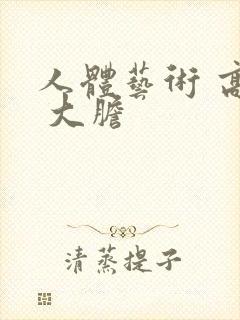 人體藝術 高
大膽
清蒸提子